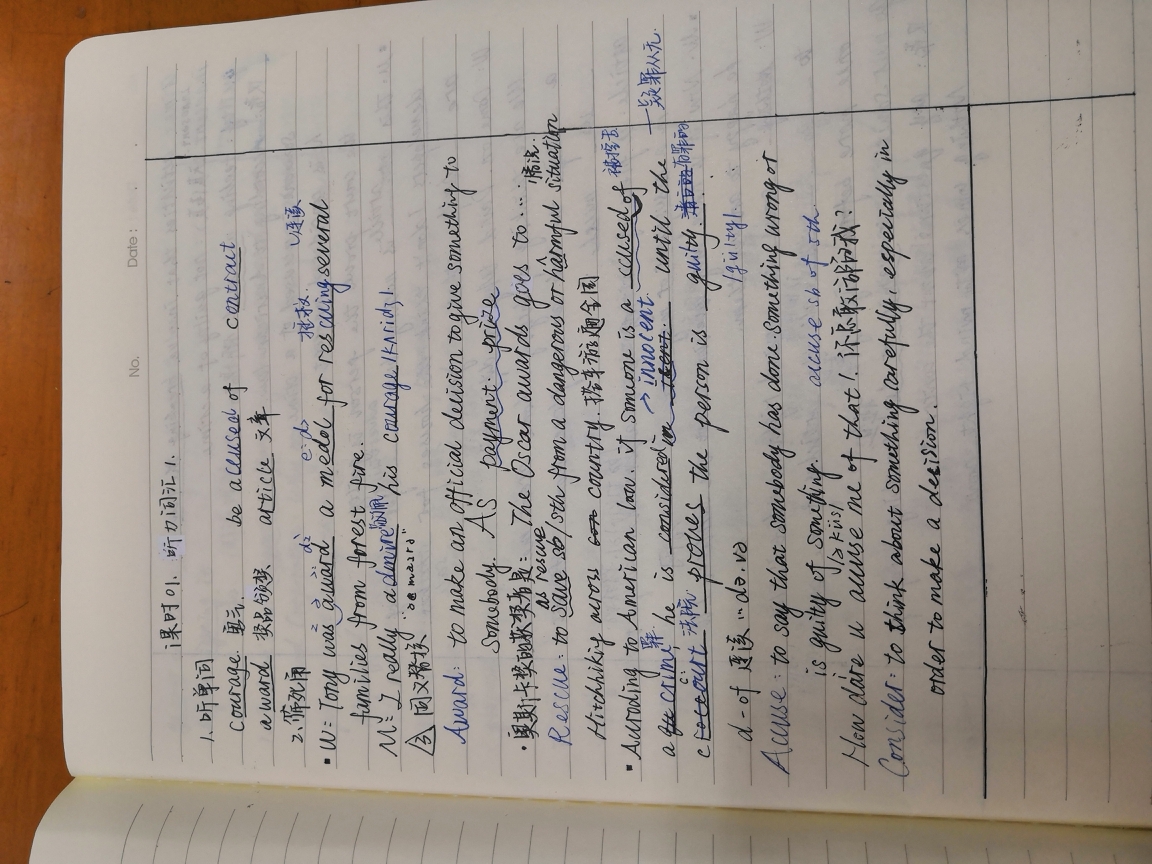 No.
Date:
课时01. 听力词汇1.
1. 听单词
courage 勇气 be accused of contract
award 奖品 颁奖 article 文章
2. 筛死角
挂救. 连读
W: Tony was award a medal for rescuing several
families from forest fire.
M: I really admire 敬佩 his courage /KAridʒ/.
③ 同义替换
Award: to make an official decision to give something to
somebody. AS payment. prize
· 奥斯卡奖的获奖者是: The Oscar awards goes to...
as rescue 情况.
Rescue: to save sb/sth from a dangerous or harmful situation
Hitchhiking across country. 搭车游遍全国
· Accroding to American law. if someone is a ccused of 被控告
a crime 罪, he is considered innocent. until the 一疑罪从无.
court 法院 proves the person is guilty. 有罪的
/gilty/
d-of 连读 "də.və
Accuse: to say that somebody has done something wrong or
is guilty of something. accuse sb of sth
How dare u accuse me of that! 你怎敢诽谤我?
Consider: to think about something carefully, especially in
order to make a decision.